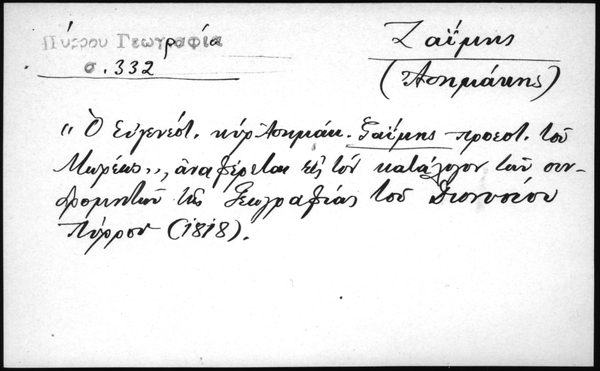 Πύρρου Γεωγραφία
σ. 332
Ζαΐμης
(Ἀσημάκης)
"Ὁ εὐγενέστ. κύρ Ἀσημάκ. Ζαΐμης προεστ. τοῦ
Μωρέως", ἀναφέρεται εἰς τόν κατάλογον τῶν συν-
δρομητῶν τῆς Γεωγραφίας τοῦ Διονυσίου
Πύρρου (1818).